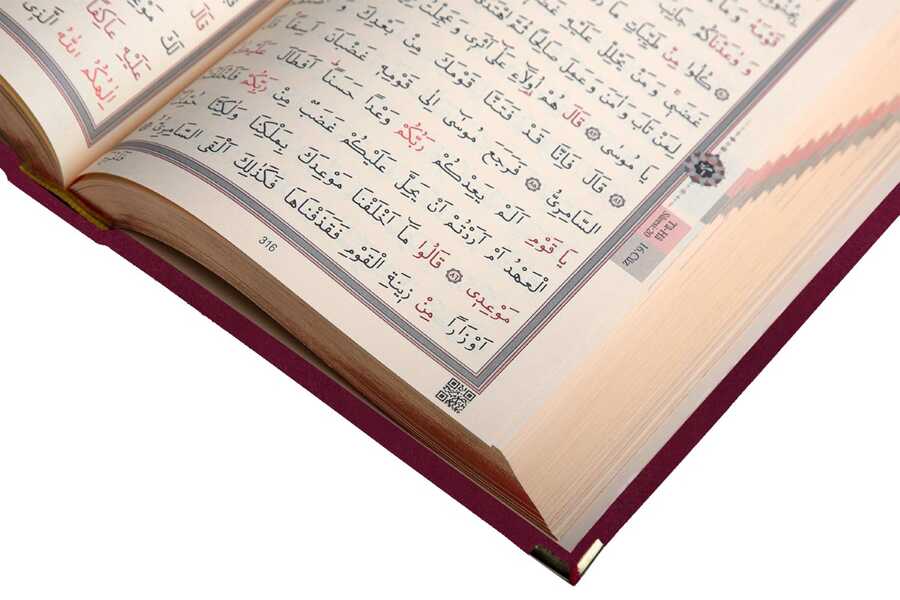 قَوْمَهُ وَمَا
وَوٰعَدْنَاكُمْ جَانِبَ
كُلُوا مِنْ طَيِّبَاتِ مَا
غَضَبٖى وَمَنْ يَحْلِلْ عَلَيْهِ
لِمَنْ تَابَ وَاٰمَنَ وَعَمِلَ صَالِحًا ثُمَّ اهْتَدٰى
يَا مُوسٰى ﴿٨٣﴾ قَالَ هُمْ اُو۬لَٓاءِ عَلٰٓى اَثَرٖى وَعَجِلْتُ
﴿٨٤﴾ قَالَ فَاِنَّا قَدْ فَتَنَّا قَوْمَكَ مِنْ بَعْدِكَ
السَّامِرِىُّ ﴿٨٥﴾ فَرَجَعَ مُوسٰٓى اِلٰى قَوْمِهٖ غَضْبَانَ اَسِفًا
يَا قَوْمِ اَلَمْ يَعِدْكُمْ رَبُّكُمْ وَعْدًا حَسَنًا اَفَطَالَ عَلَيْكُمُ
الْعَهْدُ اَمْ اَرَدْتُمْ اَنْ يَحِلَّ عَلَيْكُمْ غَضَبٌ مِنْ رَبِّكُمْ فَاَخْلَفْتُمْ
مَوْعِدٖى ﴿٨٦﴾ قَالُوا مَٓا اَخْلَفْنَا مَوْعِدَكَ بِمَلْكِنَا وَلٰكِنَّا حُمِّلْنَٓا
اَوْزَارًا مِنْ زٖينَةِ الْقَوْمِ فَقَذَفْنَاهَا فَكَذٰلِكَ اَلْقَى السَّامِرِىُّ
316
Tâ-Hâ
Sûresi-20
16.Cüz
قَالَ
لَكَ
الَّذٖى
عَلَيْهِ عَاكِفًا
اِلٰهُكُمُ اللّٰهُ